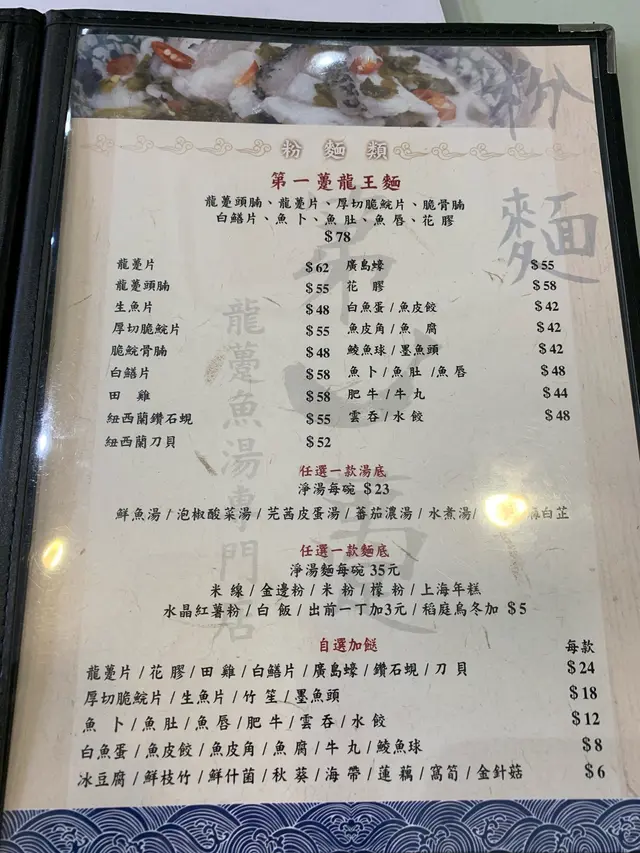 粉麵
粉麵類
第一躉龍王麵
龍躉頭腩、龍躉片、厚切脆鯇片、脆骨腩
白鱔片、魚卜、魚肚、魚唇、花膠
$78
龍躉片 $62 廣島蠔 $55
龍躉頭腩 $55 花膠 $58
生魚片 $48 白魚蛋/魚皮餃 $42
厚切脆鯇片 $55 魚皮角/魚腐 $42
脆鯇骨腩 $48 鯪魚球/墨魚頭 $42
白鱔片 $58 魚卜/魚肚/魚唇 $48
田雞 $58 肥牛/牛丸 $44
紐西蘭鑽石蜆 $55 雲吞/水餃 $48
紐西蘭刀貝 $52
第一躉
龍躉魚湯專門店
任選一款湯底
淨湯每碗 $23
鮮魚湯/泡椒酸菜湯/芫茜皮蛋湯/蕃茄濃湯/水煮湯/ 白芷
任選一款麵底
淨湯麵每碗 35元
米線/金邊粉/米粉/檬粉/上海年糕
水晶紅薯粉/白飯/出前一丁加3元/稻庭烏冬加 $5
自選加餸 每款
龍躉片/花膠/田雞/白鱔片/廣島蠔/鑽石蜆/刀貝 $24
厚切脆鯇片/生魚片/竹笙/墨魚頭 $18
魚卜/魚肚/魚唇/肥牛/雲吞/水餃 $12
白魚蛋/魚皮餃/魚皮角/魚腐/牛丸/鯪魚球 $8
冰豆腐/鮮枝竹/鮮什菌/秋葵/海帶/蓮藕/窩筍/金針菇 $6